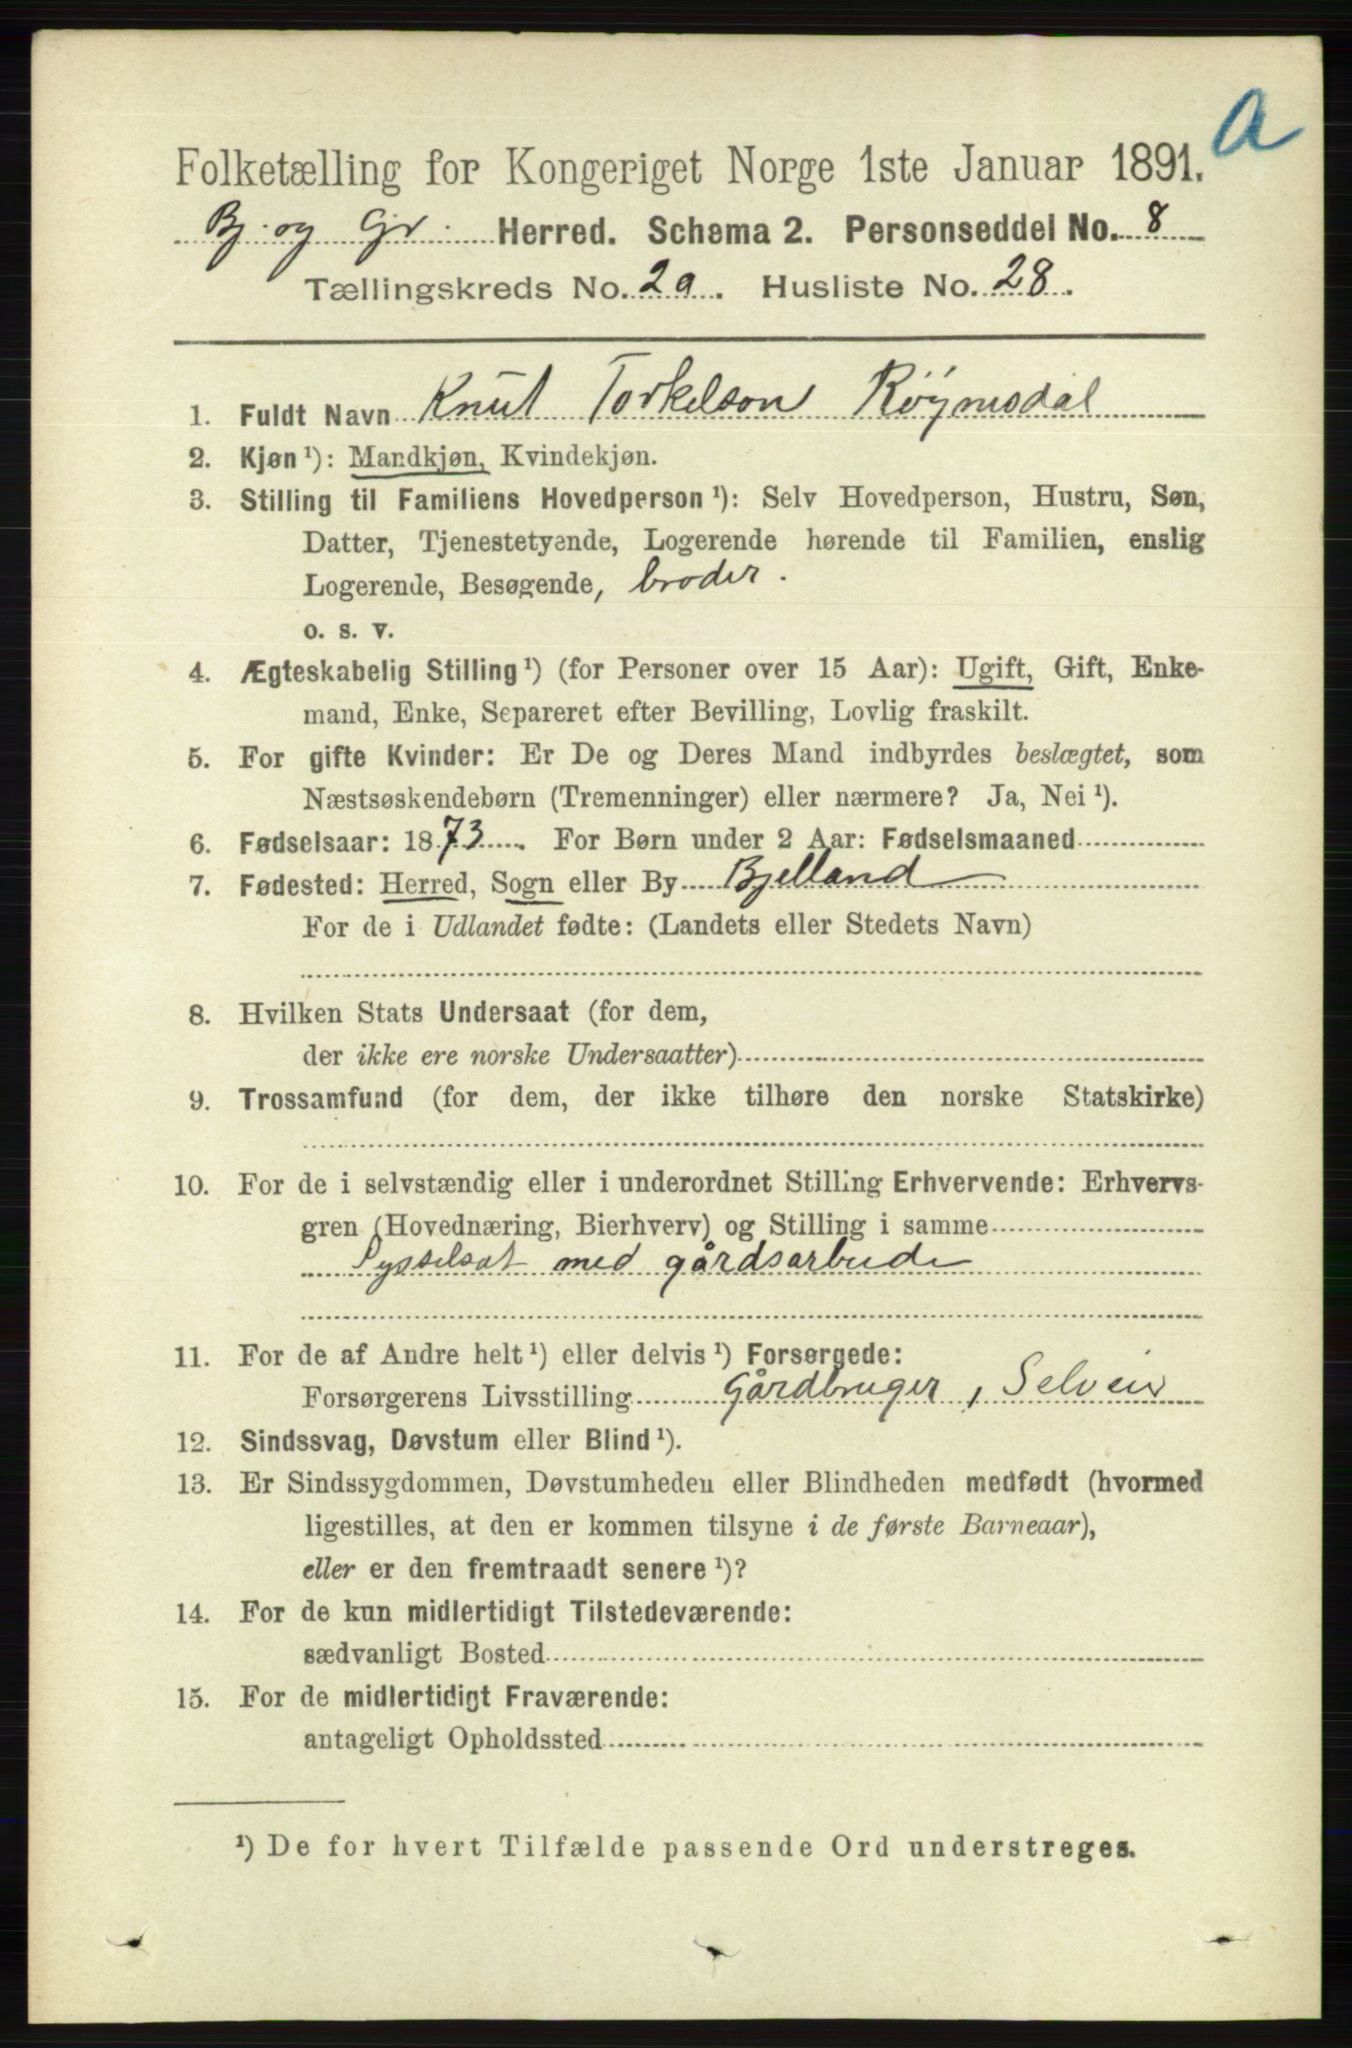 a
Folketælling for Kongeriget Norge 1ste Januar 1891.
Bj. og Gr. Herred. Schema 2. Personseddel No. 8
Tællingskreds No. 2a. Husliste No. 28.
1. Fuldt Navn Knut Torkelson Røynesdal
2. Kjøn ¹): Mandkjøn, Kvindekjøn.
3. Stilling til Familiens Hovedperson ¹): Selv Hovedperson, Hustru, Søn,
Datter, Tjenestetyende, Logerende hørende til Familien, enslig
Logerende, Besøgende, broder.
o. s. v.
4. Ægteskabelig Stilling ¹) (for Personer over 15 Aar): Ugift, Gift, Enke-
mand, Enke, Separeret efter Bevilling, Lovlig fraskilt.
5. For gifte Kvinder: Er De og Deres Mand indbyrdes beslægtet, som
Næstsøskendebørn (Tremenninger) eller nærmere? Ja, Nei ¹).
6. Fødselsaar: 1873. For Børn under 2 Aar: Fødselsmaaned
7. Fødested: Herred, Sogn eller By Bjelland
For de i Udlandet fødte: (Landets eller Stedets Navn)
8. Hvilken Stats Undersaat (for dem,
der ikke ere norske Undersaatter)
9. Trossamfund (for dem, der ikke tilhøre den norske Statskirke)
10. For de i selvstændig eller i underordnet Stilling Erhvervende: Erhvervs-
gren (Hovednæring, Bierhverv) og Stilling i samme
Sysselsat med gårdsarbeide
11. For de af Andre helt ¹) eller delvis ¹) Forsørgede:
Forsørgerens Livsstilling Gårdbruger, Selveier
12. Sindssvag, Døvstum eller Blind ¹).
13. Er Sindssygdommen, Døvstumheden eller Blindheden medfødt (hvormed
ligestilles, at den er kommen tilsyne i de første Barneaar),
eller er den fremtraadt senere ¹)?
14. For de kun midlertidigt Tilstedeværende:
sædvanligt Bosted
15. For de midlertidigt Fraværende:
antageligt Opholdssted
¹) De for hvert Tilfælde passende Ord understreges.